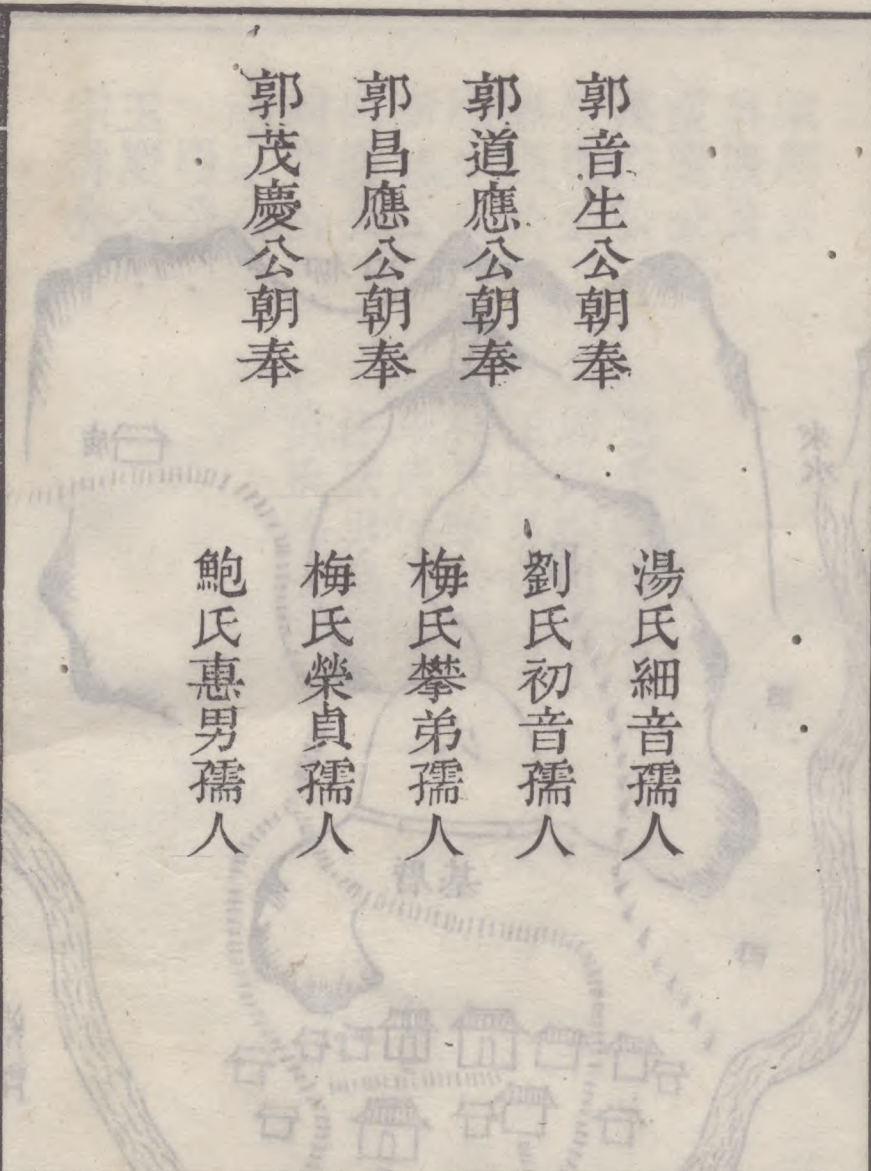 郭音生公朝奉
郭道應公朝奉
郭昌應公朝奉
郭茂慶公朝奉
湯氏細音孺人
劉氏初音孺人
梅氏攀弟孺人
梅氏榮貞孺人
鮑氏惠男孺人